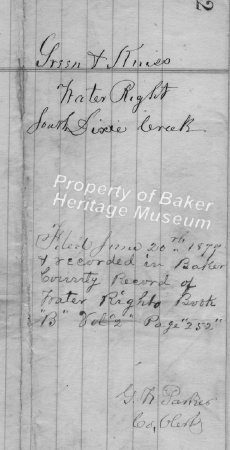 2
Green & Kniss
Water Right
South Dixie Creek
Property of Baker
Heritage Museum
Filed June 20th 1877
& recorded in Baker
County Record of
Water Rights Book
"B" Vol "2" Page "252"
G. W. Parker
Co, Clerk